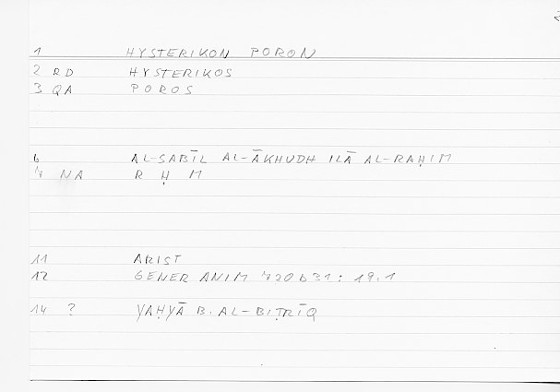 1 HYSTERIKON PORON
2 RD HYSTERIKOS
3 QA POROS
6 AL-SABĪL AL-ĀKHUDH ILĀ AL-RAḤIM
NA R Ḥ M
11 ARIST
12 GENER ANIM 720b31: 19.1
14 ? YAḤYĀ B. AL-BIṬRĪQ